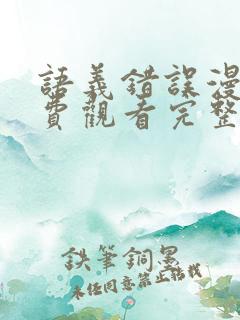 語義錯誤漫
費觀看完整
鉄筆銅墨
未经同意禁止转载